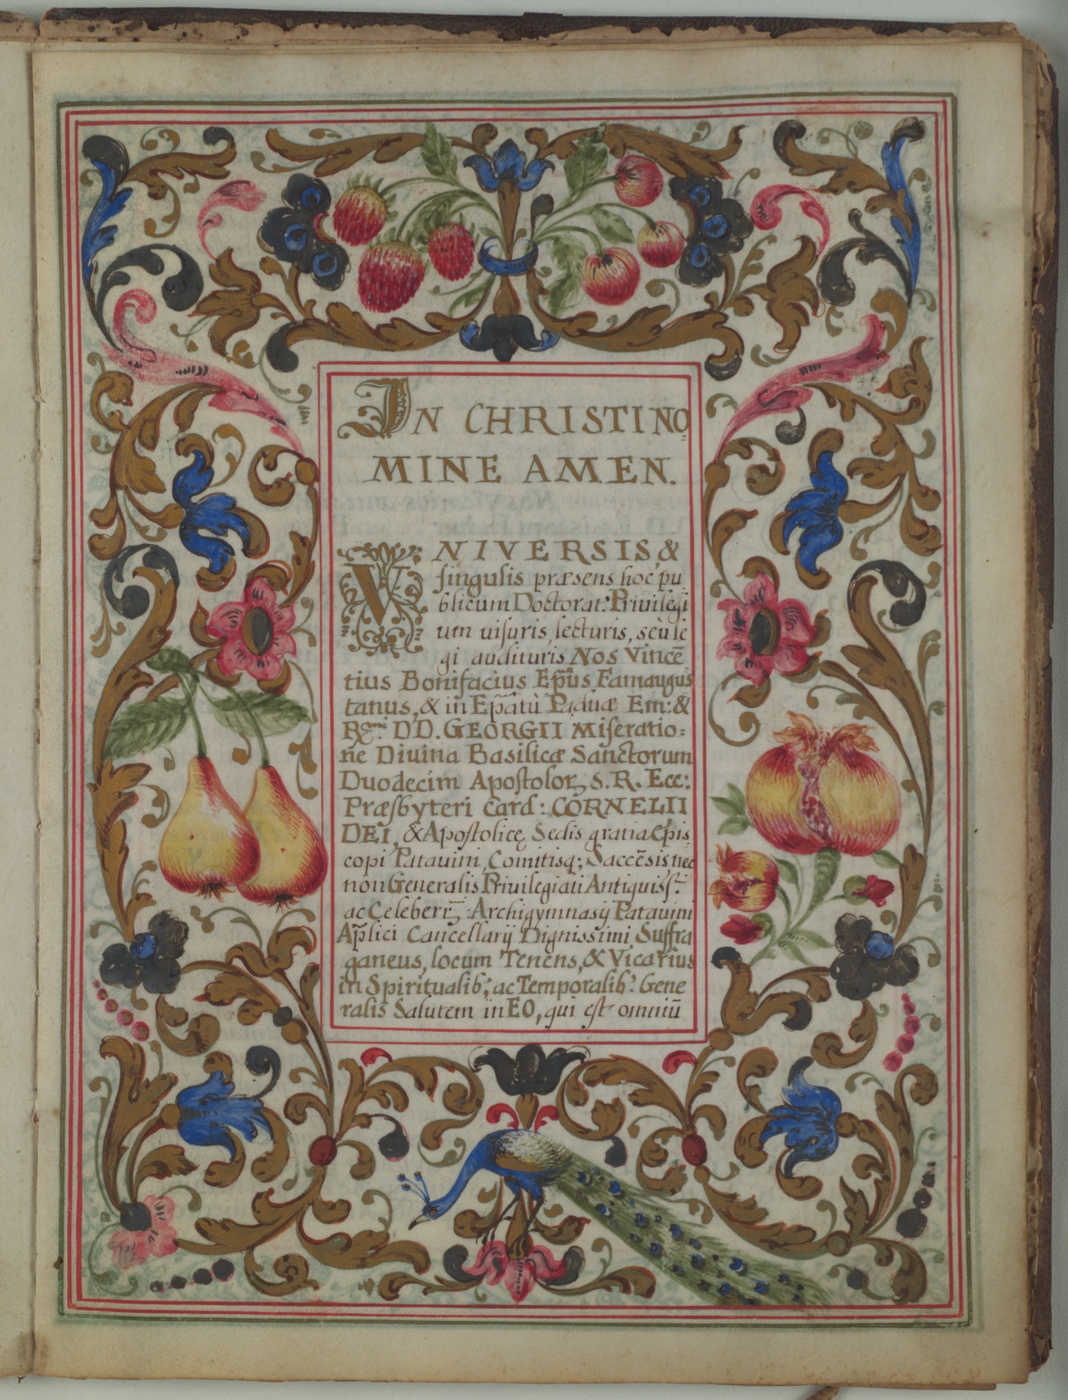 IN CHRISTI NO
MINE AMEN.
VNIVERSIS, &
singulis præsens hoc pu
blicum Doctorat: Privilegi
um visuris, lecturis, seu le
gi audituris Nos Vincẽ
tius Bonifacius Ep̃us Famaugus
tanus, & in Ep̃atũ Paduæ Em: &
R.mi D.D. GEORGII Miseratio:
ne Divina Basilicæ Sanctorum
Duodecim Apostolor, S. R. Ecc:
Præsbyteri Card: CORNELII
DEI, & Apostolicę Sedis gratia Epis
copi Patavini, Comitisq; Saccẽsis nec
non Generalis Privilegiati Antiquiss:
ac Celeberr: Archigymnasij Patavini
Ap̃lici Cancellarij Dignissimi, Suffra
ganeus, locum Tenens, & Vicarius
in Spiritualib; ac Temporalib: Gene
ralis Salutem in EO, qui est omniũ